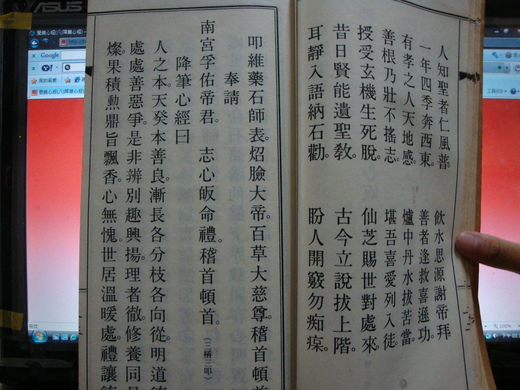 人知聖者仁風普。 飲水思源謝帝拜。
一年四季奔西東 善者逢救喜遜功。
有孝之人天地感。 爐中丹水拔苦當。
善根乃壯不搖志 堪吾喜愛列入徒。
授受玄機生死脫。 仙芝賜世對處來
昔日賢能遺聖教。 古今立說拔上階。
耳靜入語納石勸。 盼人開竅勿痴
叩維藥石師表炤臉大帝。百草大慈尊。稽首頓首
奉請
南宮孚佑帝君。 志心皈命禮。稽首頓首。(三稱三叩)
降筆心經曰
人之本天癸本善良漸長各分枝各向從明道德
處處善惡爭是非辨別趣興揚。理者徹。修養同
燦果積勲鼎旨飄香。心無愧。世居溫暖處。禮讓
ASUS
Google